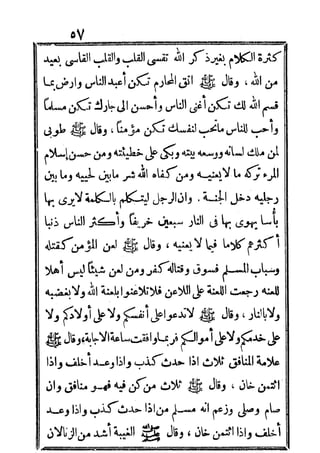 ٥٧
كثرة الكلام بغير ذكر الله تقسى القلب والقلب القاسى بعيد
من الله ، وقال ﷺ اتق المحارم تكن أعبد الناس وارض بما
قسم الله لك تكن أغنى الناس وأحسن الى جارك تكن مسلما
وأحب للناس ماتحب لنفسك تكن مؤمنا ، وقال ﷺ طوبى
لمن ملك لسانه ووسعه بيته وبكى على خطيئته ومن حسن إسلام
المرء تركه ما لا يعنيه ومن كفاه الله شر مابين لحييه وما بين
رجليه دخل الجنة . وان الرجل ليتكلم بالكلمة لايرى بها
بأسا يهوى بها فى النار سبعين خريفا وأكثر الناس ذنبا
أكثرهم كلاما فيما لا يعنيه ، وقال ﷺ لعن المؤمن كقتله
وسباب المسلم فسوق وقتاله كفر ومن لعن شيئا ليس أهلا
للعنه رجعت اللعنة على اللاعن فلا تلاعنوا بلعنة الله ولا بغضبه
ولا بالنار ، وقال ﷺ لاتدعوا على أنفسكم ولا على أولادكم ولا
على خدمكم ولا على أموالكم فربما وافقت ساعة الاجابة، وقال ﷺ
علامة المنافق ثلاث اذا حدث كذب واذا وعد أخلف واذا
ائتمن خان ، وقال ﷺ ثلاث من كن فيه فهو منافق وان
صام وصلى وزعم انه مسلم من اذا حدث كذب واذا وعد
أخلف واذا ائتمن خان ، وقال ﷺ الغيبة أشد من الزنا لان